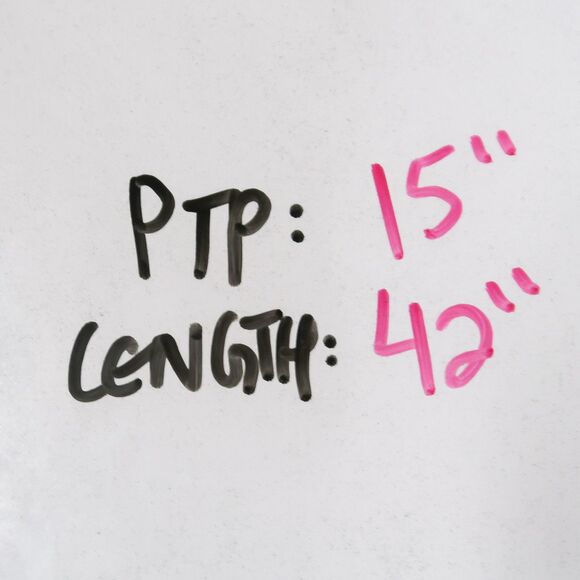 PTP: 15"
LENGTH: 42"